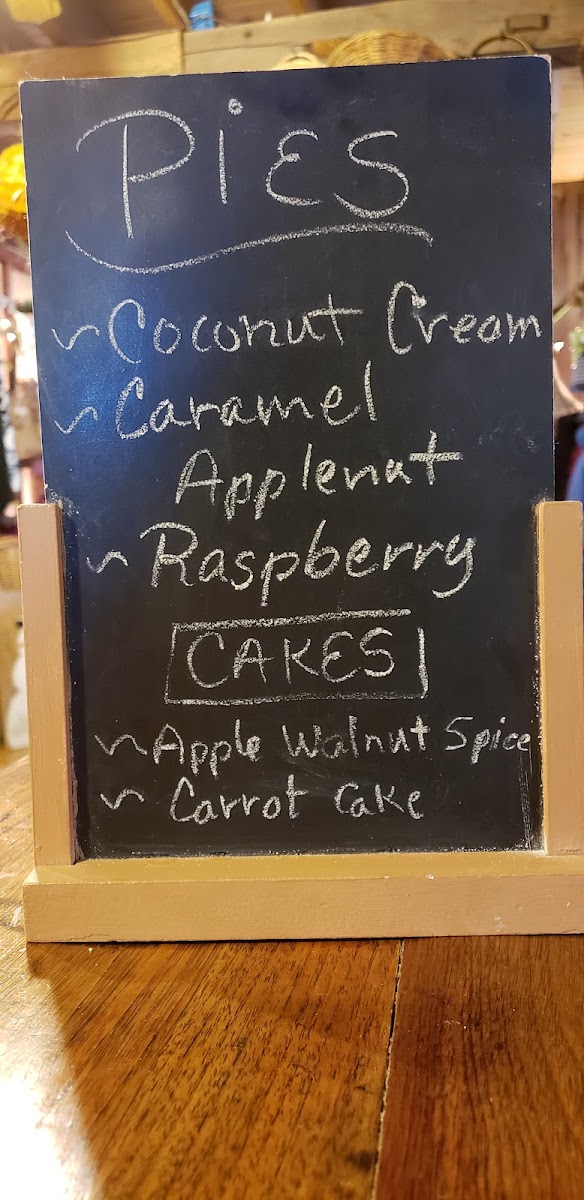 Pies
~ Coconut Cream
~ Caramel
Applenut
~ Raspberry
CAKES
~ Apple Walnut Spice
~ Carrot Cake